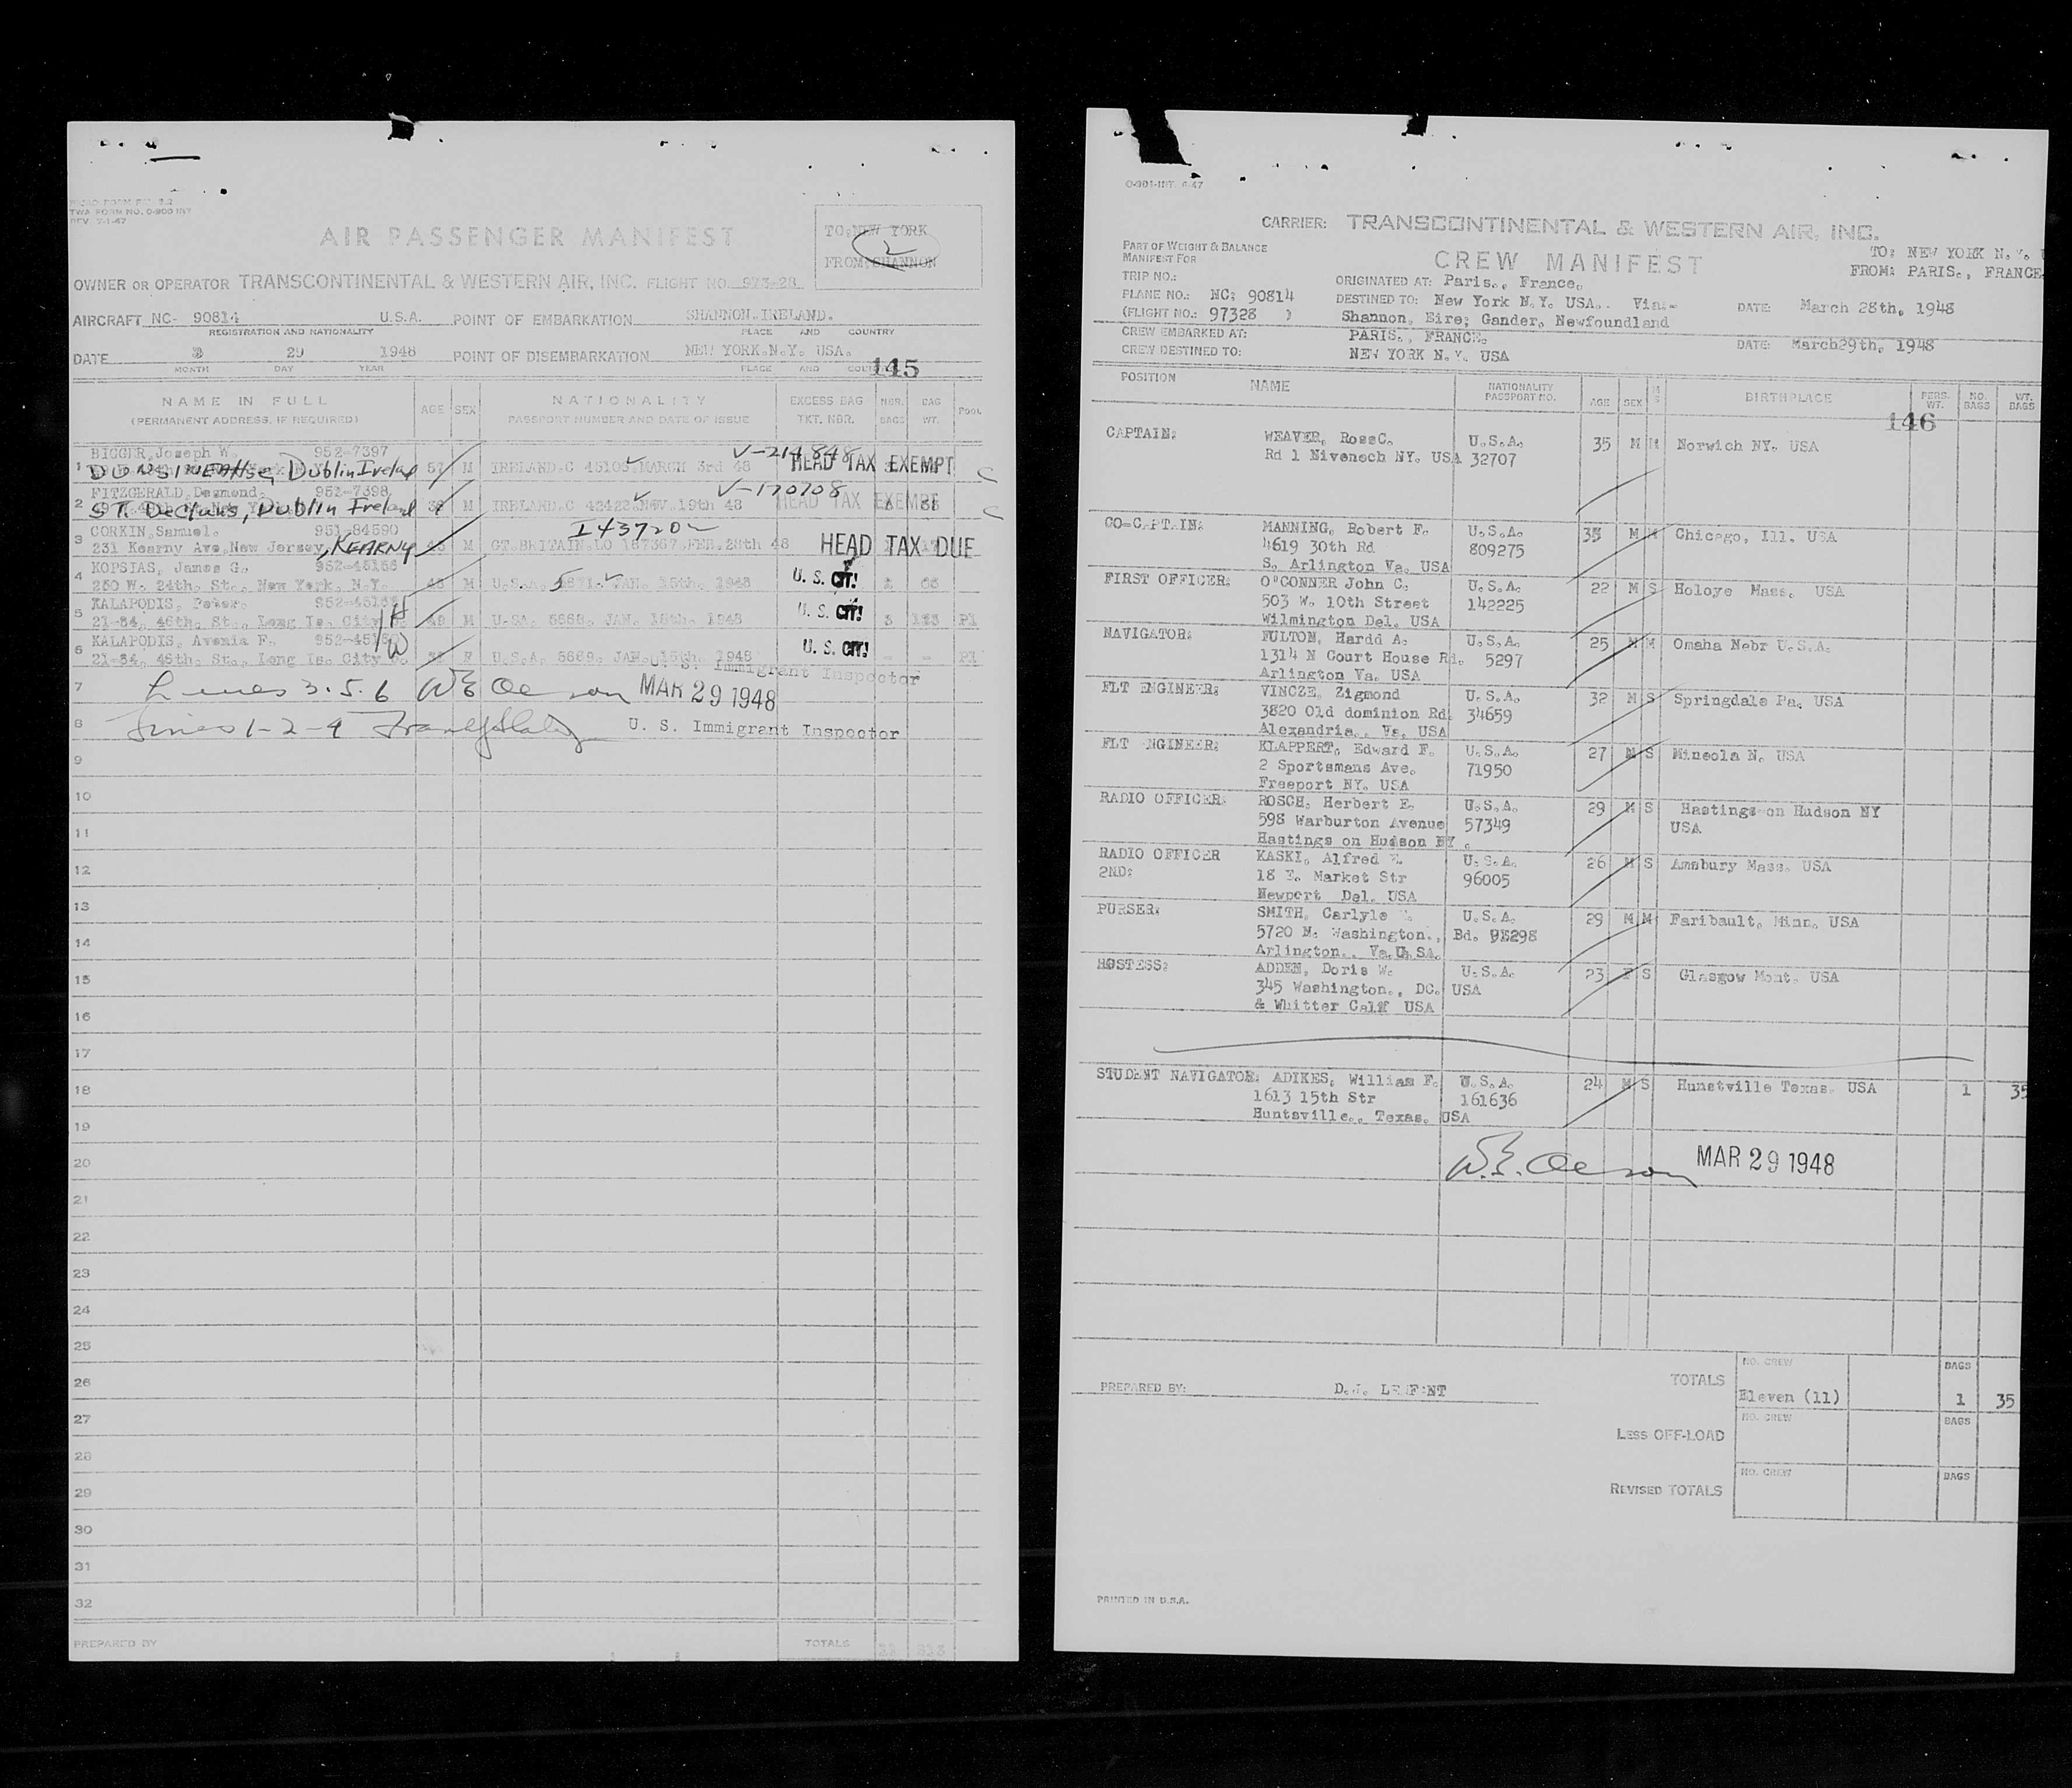 TWA FORM NO. 0-900 INT
REV. 7-1-47
AIR PASSENGER MANIFEST
TO: NEW YORK
2
FROM: SHANNON
OWNER OR OPERATOR TRANSCONTINENTAL & WESTERN AIR, INC. FLIGHT NO. 973-28
AIRCRAFT NC- 90814 U.S.A. POINT OF EMBARKATION SHANNON. IRELAND.
REGISTRATION AND NATIONALITY PLACE AND COUNTRY
DATE 3 29 1948 POINT OF DISEMBARKATION NEW YORK.N.Y. USA.
MONTH DAY YEAR PLACE AND COUNTRY
145
NAME IN FULL AGE SEX NATIONALITY EXCESS BAG NBR. BAG POOL
(PERMANENT ADDRESS, IF REQUIRED) PASSPORT NUMBER AND DATE OF ISSUE TKT. NBR. BAGS WT.
BIGGER, Joseph W. 952-7397 V-214848
1 Dublin Ireland 57 M IRELAND.C 45105 MARCH 3rd 48 HEAD TAX EXEMPT
FITZGERALD, Desmond. 952-7398 V-170708
2 ST. Declans, Dublin Ireland M IRELAND.C 42423 NOV. 19th 48 HEAD TAX EXEMPT
CORKIN, Samuel. 951-84590 I 437202
3 231 Kearny Ave, New Jersey, KEARNY M GT. BRITAIN.LO 187367.FEB. 28th 48 HEAD TAX DUE
KOPSIAS, James G. 952-45156
4 250 W. 24th. St., New York, N.Y. 48 M U.S.A. 5871. JAN. 15th. 1948 U. S. CIT!
KALAPODIS, Peter.
5 21-34, 46th. St., Long Is. City H M U.SA. 5668. JAN. 15th. 1948 U. S. CIT! Pl
KALAPODIS, Avenia F.
6 21-34, 46th. St., Long Is. City W F U.S.A. 5669. JAN. 15th. 1948 U. S. CIT! - - Pl
U. S. Immigrant Inspector
7 Lines 3.5.6 MAR 29 1948
8 Lines 1-2-4 U. S. Immigrant Inspector
9
10
11
12
13
14
15
16
17
18
19
20
21
22
23
24
25
26
27
28
29
30
31
32
PREPARED BY TOTALS
0-901-INT. 6-47
CARRIER: TRANSCONTINENTAL & WESTERN AIR, INC.
PART OF WEIGHT & BALANCE
MANIFEST FOR
CREW MANIFEST
TO: NEW YORK N.Y.
FROM: PARIS., FRANCE
TRIP NO.: ORIGINATED AT: Paris., France.
PLANE NO.: NC: 90814 DESTINED TO: New York N.Y. USA.. Via:- DATE: March 28th, 1948
(FLIGHT NO.: 97328 ) Shannon, Eire; Gander, Newfoundland
CREW EMBARKED AT: PARIS., FRANCE. DATE: March29th, 1948
CREW DESTINED TO: NEW YORK N.Y. USA
POSITION NAME NATIONALITY PASSPORT NO. AGE SEX M S BIRTHPLACE PERS. WT. NO. BAGS WT. BAGS
146
CAPTAIN: WEAVER, RossC. U.S.A. 35 M M Norwich NY. USA
Rd 1 Nivenech NY. USA 32707
CO-CAPTAIN: MANNING, Robert F. U.S.A. 35 M M Chicago, Ill. USA
4619 30th Rd 809275
S. Arlington Va. USA
FIRST OFFICER: O'CONNER John C. U.S.A. 22 M S Holoye Mass. USA
503 W. 10th Street 142225
Wilmington Del. USA
NAVIGATOR: FULTON, Hardd A. U.S.A. 25 M M Omaha Nebr U.S.A.
1314 N Court House Rd. 5297
Arlington Va. USA
FLT ENGINEER: VINCZE, Zigmond U.S.A. 32 M S Springdale Pa. USA
3820 Old dominion Rd. 34659
Alexandria., Va. USA
FLT ENGINEER: KLAPPERT, Edward F. U.S.A. 27 M S Mineola N. USA
2 Sportsmans Ave. 71950
Freeport NY. USA
RADIO OFFICER: ROSCH, Herbert E. U.S.A. 29 M S Hastings on Hudson NY
598 Warburton Avenue 57349 USA
Hastings on Hudson NY.
RADIO OFFICER KASKI, Alfred U.S.A. 26 M S Amsbury Mass. USA
2ND: 18 E. Market Str 96005
Newport Del. USA
PURSER: SMITH, Carlyle U.S.A. 29 M M Faribault, Minn. USA
5720 N. Washington., Bd. 95298
Arlington.. Va.U.SA.
HOSTESS: ADDEN, Doris W. U.S.A. 23 F S Glasgow Mont. USA
345 Washington., DC. USA
& Whitter Calif USA
STUDENT NAVIGATOR: ADIKES, William F. U.S.A. 24 M S Hunstville Texas. USA 1 35
1613 15th Str 161636
Huntsville., Texas. USA
MAR 29 1948
PREPARED BY: D.J. LENFANT
TOTALS NO. CREW Eleven (11) BAGS 1 35
LESS OFF-LOAD NO. CREW BAGS
REVISED TOTALS NO. CREW BAGS
PRINTED IN U.S.A.